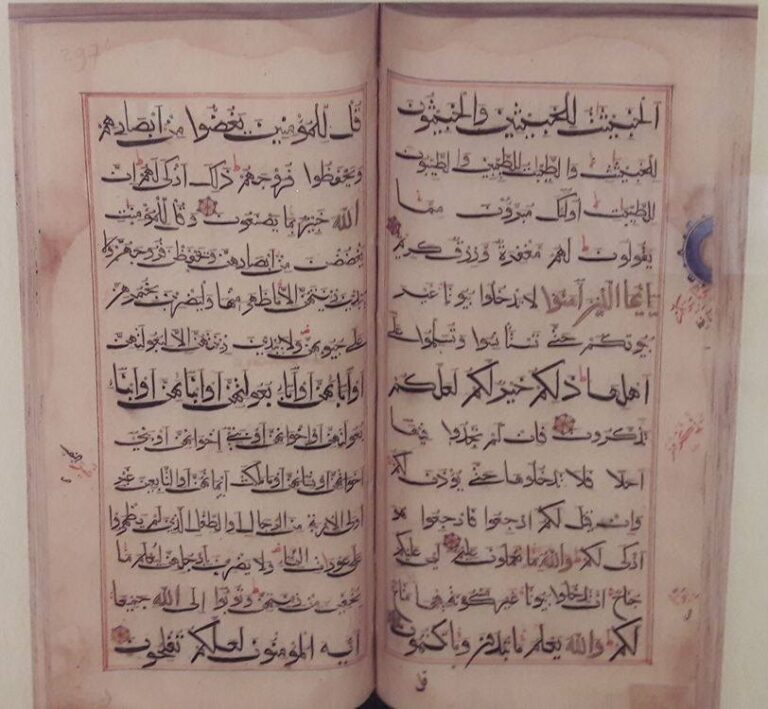 الخبيثت للخبيثين والخبيثون
للخبيثت والطيبت للطيبين والطيبون
للطيبت اولئك مبرؤن مما
يقولون لهم مغفرة ورزق كريم
يايها الذين آمنوا لا تدخلوا بيوتا غير
بيوتكم حتى تستأنسوا وتسلموا على
اهلها ذلكم خير لكم لعلكم
تذكرون فان لم تجدوا فيها
احدا فلا تدخلوها حتى يؤذن لكم
وان قيل لكم ارجعوا فارجعوا هو
ازكى لكم والله بما تعملون عليم ليس عليكم
جناح ان تدخلوا بيوتا غير مسكونة فيها متاع
لكم والله يعلم ما تبدون وما تكتمون
قل
قل للمؤمنين يغضوا من ابصارهم
ويحفظوا فروجهم ذلك ازكى لهم ان
الله خبير بما يصنعون وقل للمؤمنت
يغضضن من ابصارهن ويحفظن فروجهن ولا
يبدين زينتهن الا ما ظهر منها وليضربن بخمرهن
على جيوبهن ولا يبدين زينتهن الا لبعولتهن
او ابائهن او اباء بعولتهن او ابنائهن او ابناء
بعولتهن او اخوانهن او بني اخوانهن او بني
اخواتهن او نسائهن او ما ملكت ايمانهن او التابعين غير
اولى الاربة من الرجال او الطفل الذين لم يظهروا
على عورات النساء ولا يضربن بارجلهن ليعلم ما
يخفين من زينتهن وتوبوا الى الله جميعا
ايه المؤمنون لعلكم تفلحون